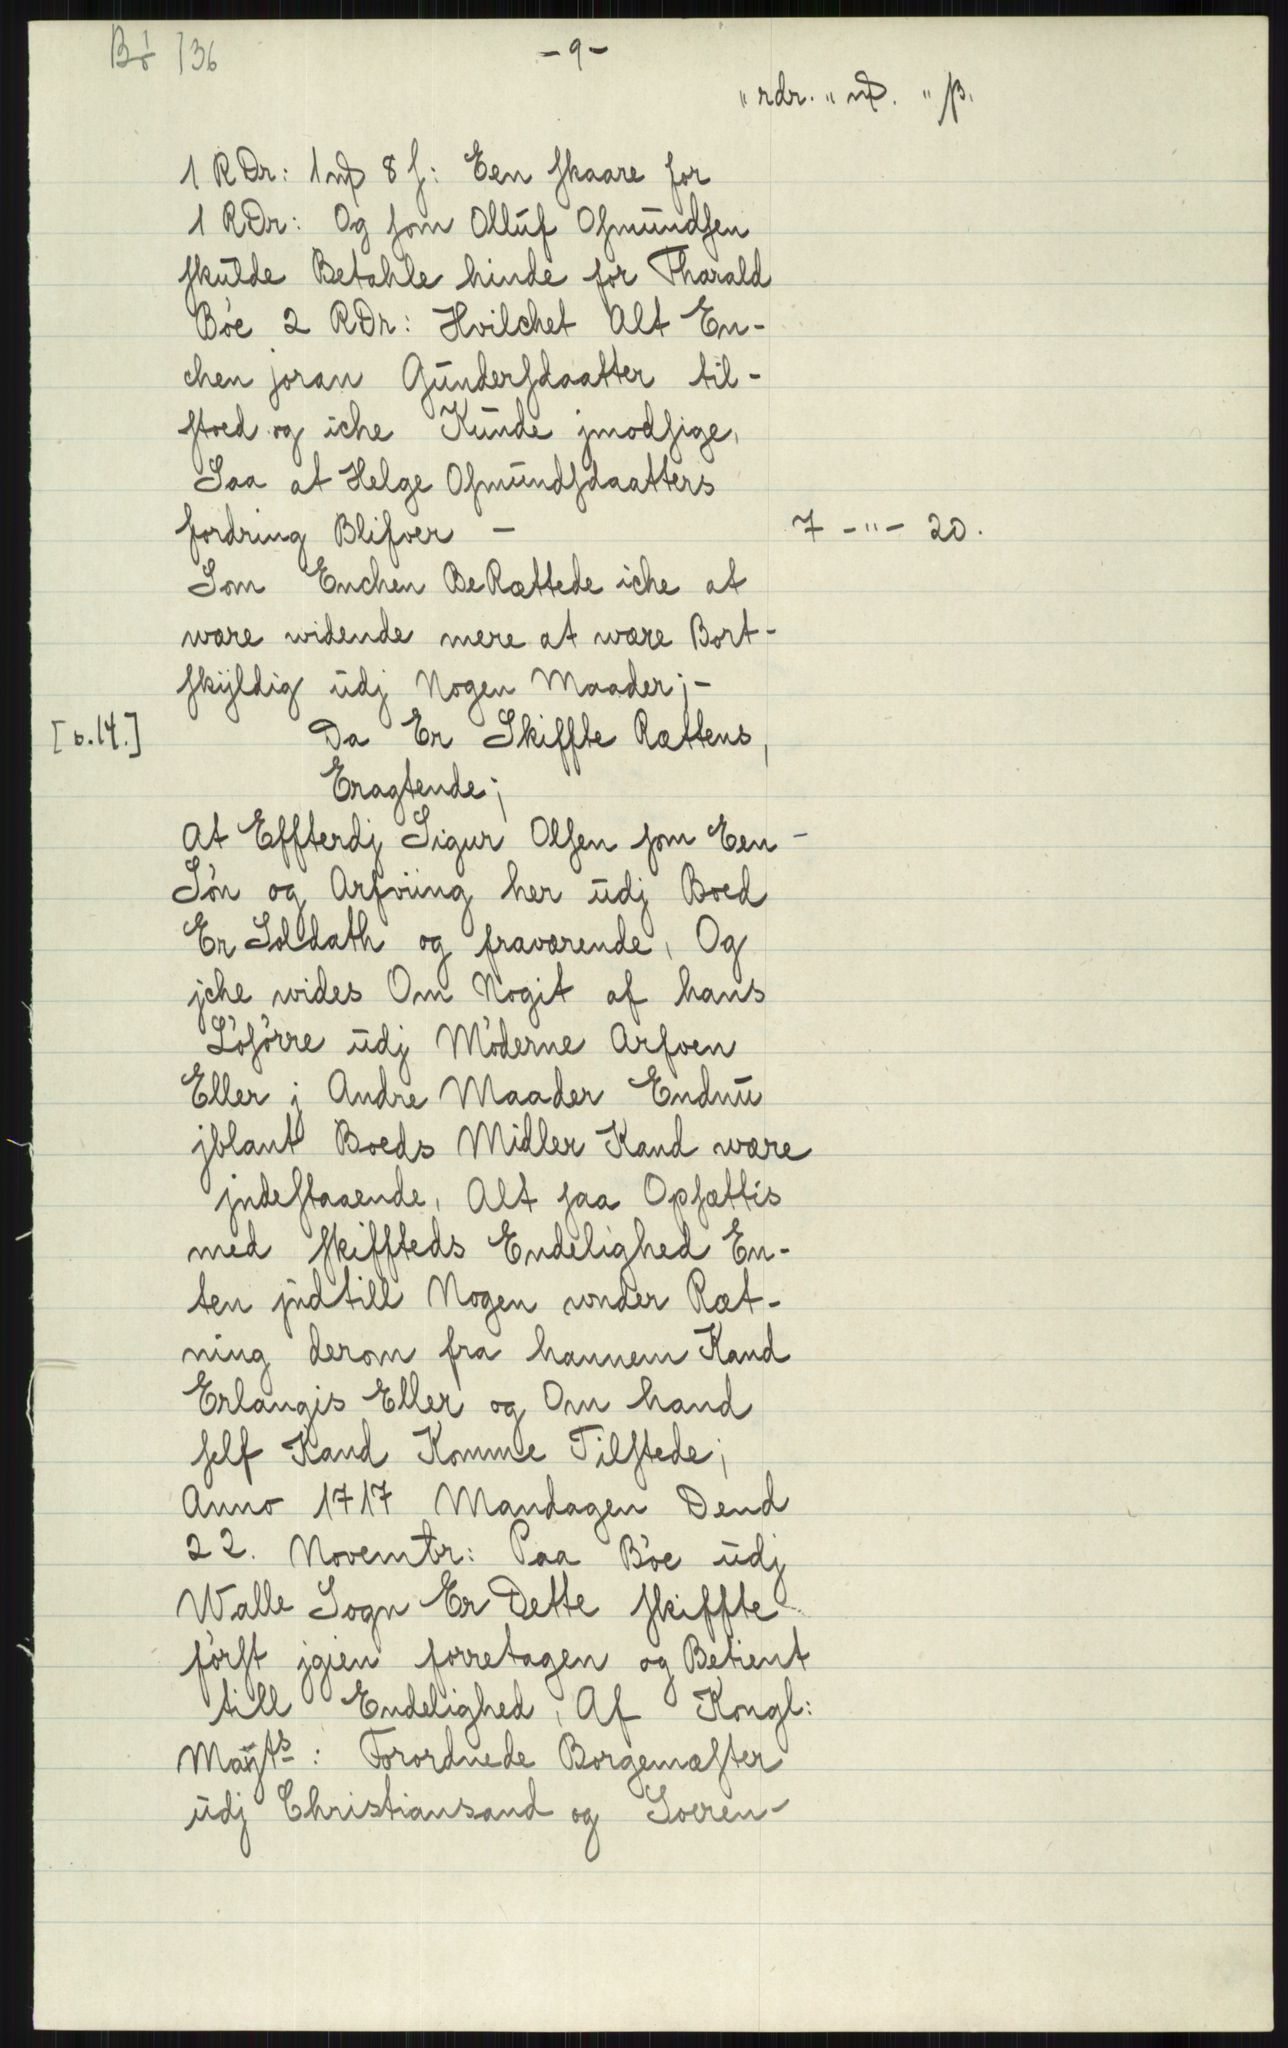 Bö 136
- 9 -
" rdr. " m͞p. " β.
1 RDr: 1 m͞p 8 ſ: Een ſkaare for
1 RDr: Og ſom Olluf Oſmundſen
ſkulde Betahle hinde for Tharald
Böe 2 RDr: Hvilchet Alt En-
chen joran Gunderſdaatter til-
ſtoed og iche Kunde jmodſige,
Saa at Helge Oſmundſdaatters
fordring Blifver - 7 - " - 20.
Som Enchen BeRættede iche at
være vidende mere at være Bort-
ſkÿldig udj Nogen Maader; -
[b.14.] Da Er Skiffte Rættens,
Eragtende;
At Effterdj Sigur Olſen ſom Een -
Sön og Arfviing her udj Boed
Er Soldath og fraværende, Og
jche vides Om Nogit af hans
Löſörre udj Möderne Arfven
Eller j Andre Maader Endnu
jblant Boeds Midler Kand være
jndeſtaaende, Alt ſaa Opſættis
med ſkiffteds Endelighed En-
ten jndtill Nogen vnder Ræt-
ning derom fra hannem Kand
Erlangis Eller og Om hand
ſelf Kand Komme Tilſtede;
Anno 1717 Mandagen Dend
22. Novembr: Paa Böe udj
Walle Sogn Er Dette ſkiffte
förſt jgien forretagen og Betient
till Endelighed, Af Kongl:
Maÿts: Forordnede Borgemæſter
udj Christiansand og Soeren-